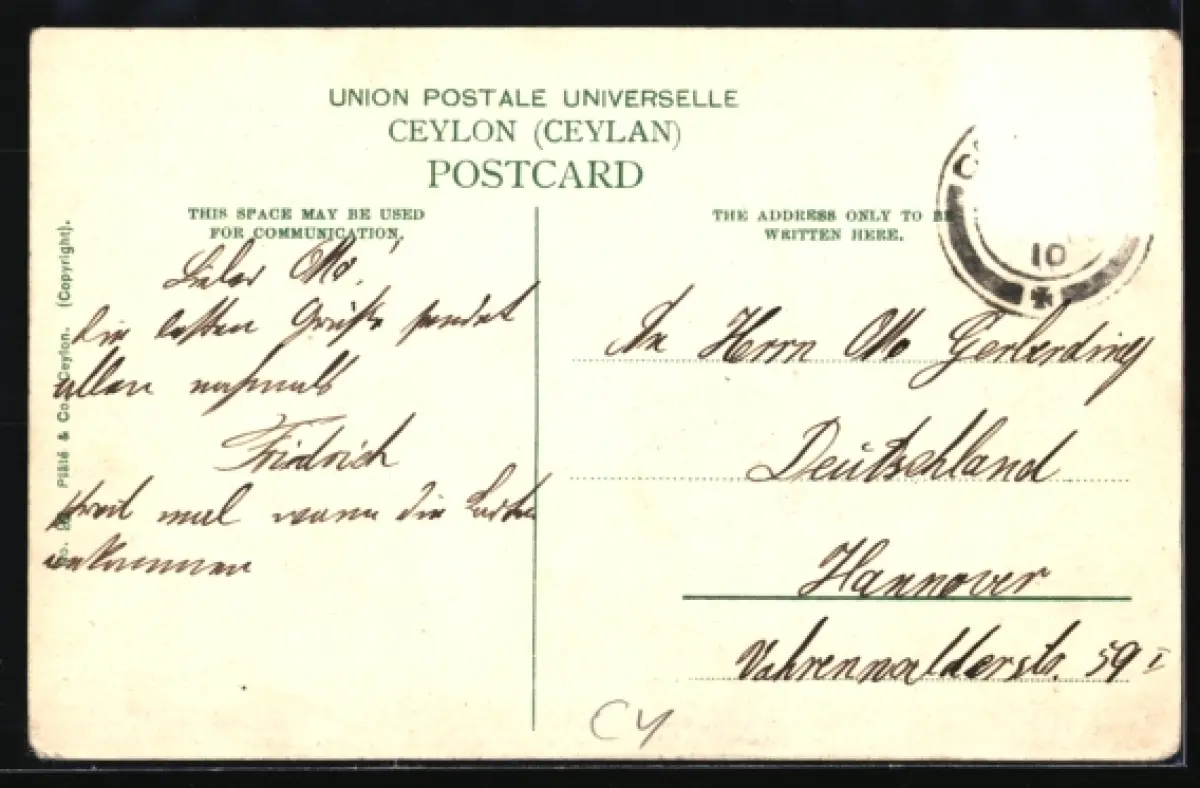 UNION POSTALE UNIVERSELLE
CEYLON (CEYLAN)
POSTCARD
THIS SPACE MAY BE USED
FOR COMMUNICATION.
Lieber Otto!
die letzten Grüße sendet
allen nochmals
Friedrich
mal wann die Karten
ankommen
Plâté & Co. Ceylon. (Copyright).
THE ADDRESS ONLY TO BE
WRITTEN HERE.
10
An Herrn Otto Gerberding
Deutschland
Hannover
Vahrenwalderstr. 59 I
CY